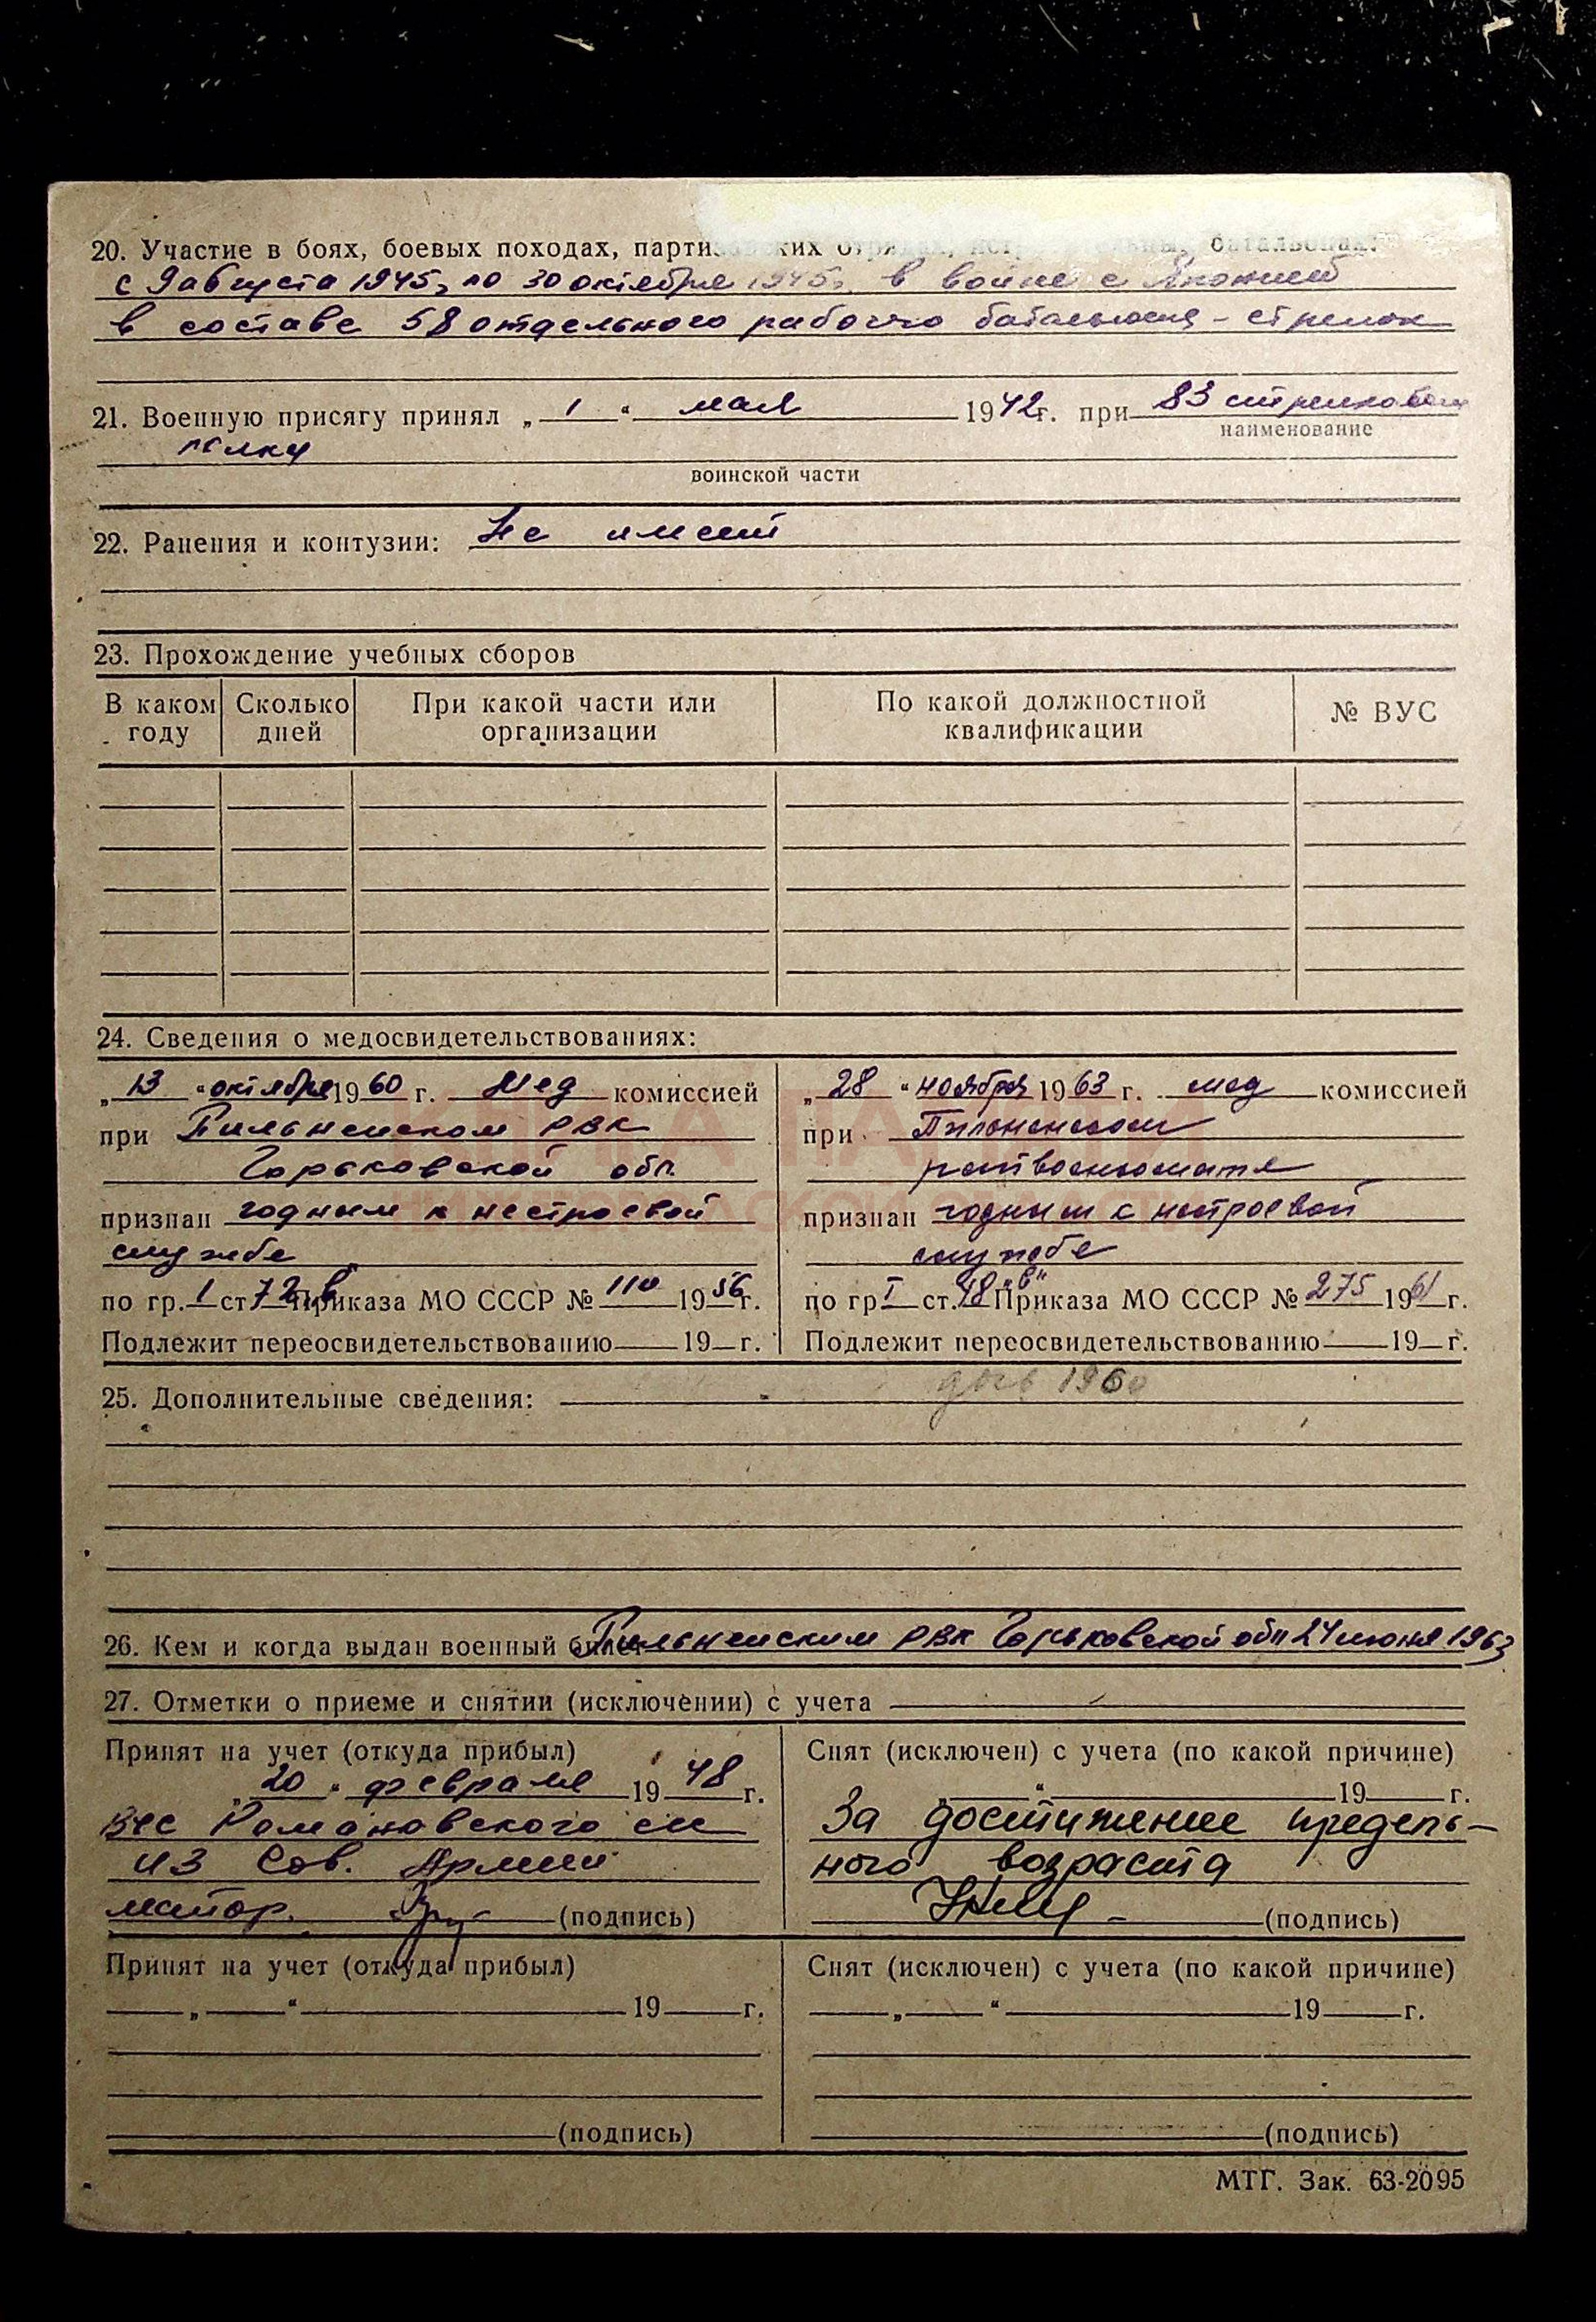 20. Участие в боях, боевых походах, партизанских отрядах, истребительных батальонах:
с 9 августа 1945г по 30 октября 1945г. в войне с Японией
в составе 58 отдельного рабочего батальона - стрелок
21. Военную присягу принял „ 1 “ мая 1942г. при 83 стрелковом
наименование
полку
воинской части
22. Ранения и контузии: Не имеет
23. Прохождение учебных сборов
В каком году Сколько дней При какой части или организации По какой должностной квалификации № ВУС
24. Сведения о медосвидетельствованиях:
„ 13 “ октября 1960 г. Мед комиссией
при Пильненском РВК
Горьковской обл.
признан годным к нестроевой
службе
по гр. 1 ст 72 в Приказа МО СССР № 110 1956г.
Подлежит переосвидетельствованию 19 г.
„ 28 “ ноября 1963 г. мед комиссией
при Пильненском
райвоенкомате
признан годным к нестроевой
службе
по гр I ст. 48 „в“ Приказа МО СССР № 275 1961 г.
Подлежит переосвидетельствованию 19 г.
25. Дополнительные сведения: 1960
26. Кем и когда выдан военный билет Пильненским РВК Горьковской обл 24 июня 1963
27. Отметки о приеме и снятии (исключении) с учета
Принят на учет (откуда прибыл)
„ 20 “ февраля 1948 г.
Романовского
из Сов. Армии
майор. (подпись)
Снят (исключен) с учета (по какой причине)
“ 19 г.
За достижение предель-
ного возраста
(подпись)
Принят на учет (откуда прибыл)
„ “ 19 г.
(подпись)
Снят (исключен) с учета (по какой причине)
„ “ 19 г.
(подпись)
МТГ. Зак. 63-2095
КНИГА ПАМЯТИ
НИЖЕГОРОДСКОЙ ОБЛАСТИ